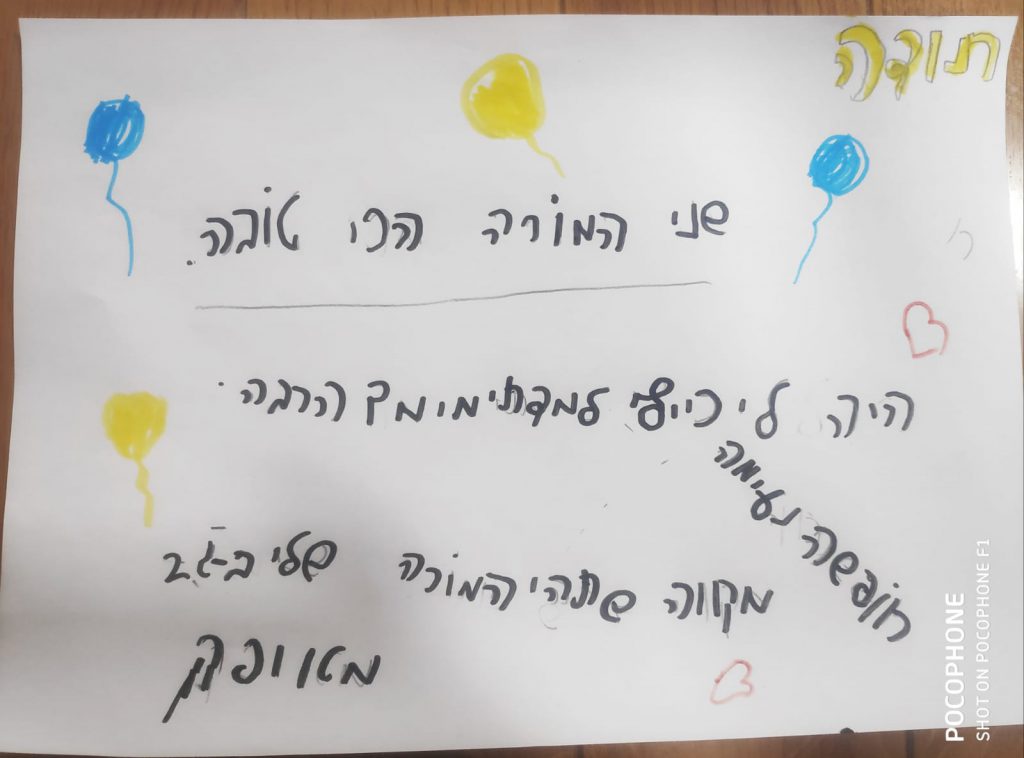 תודה
שני המורה הכי טובה.
היה לי כייף למדתי ממך הרבה.
חופשה נעימה
מקווה שתהי המורה שלי ב-ג'2
POCOPHONE
SHOT ON POCOPHONE F1